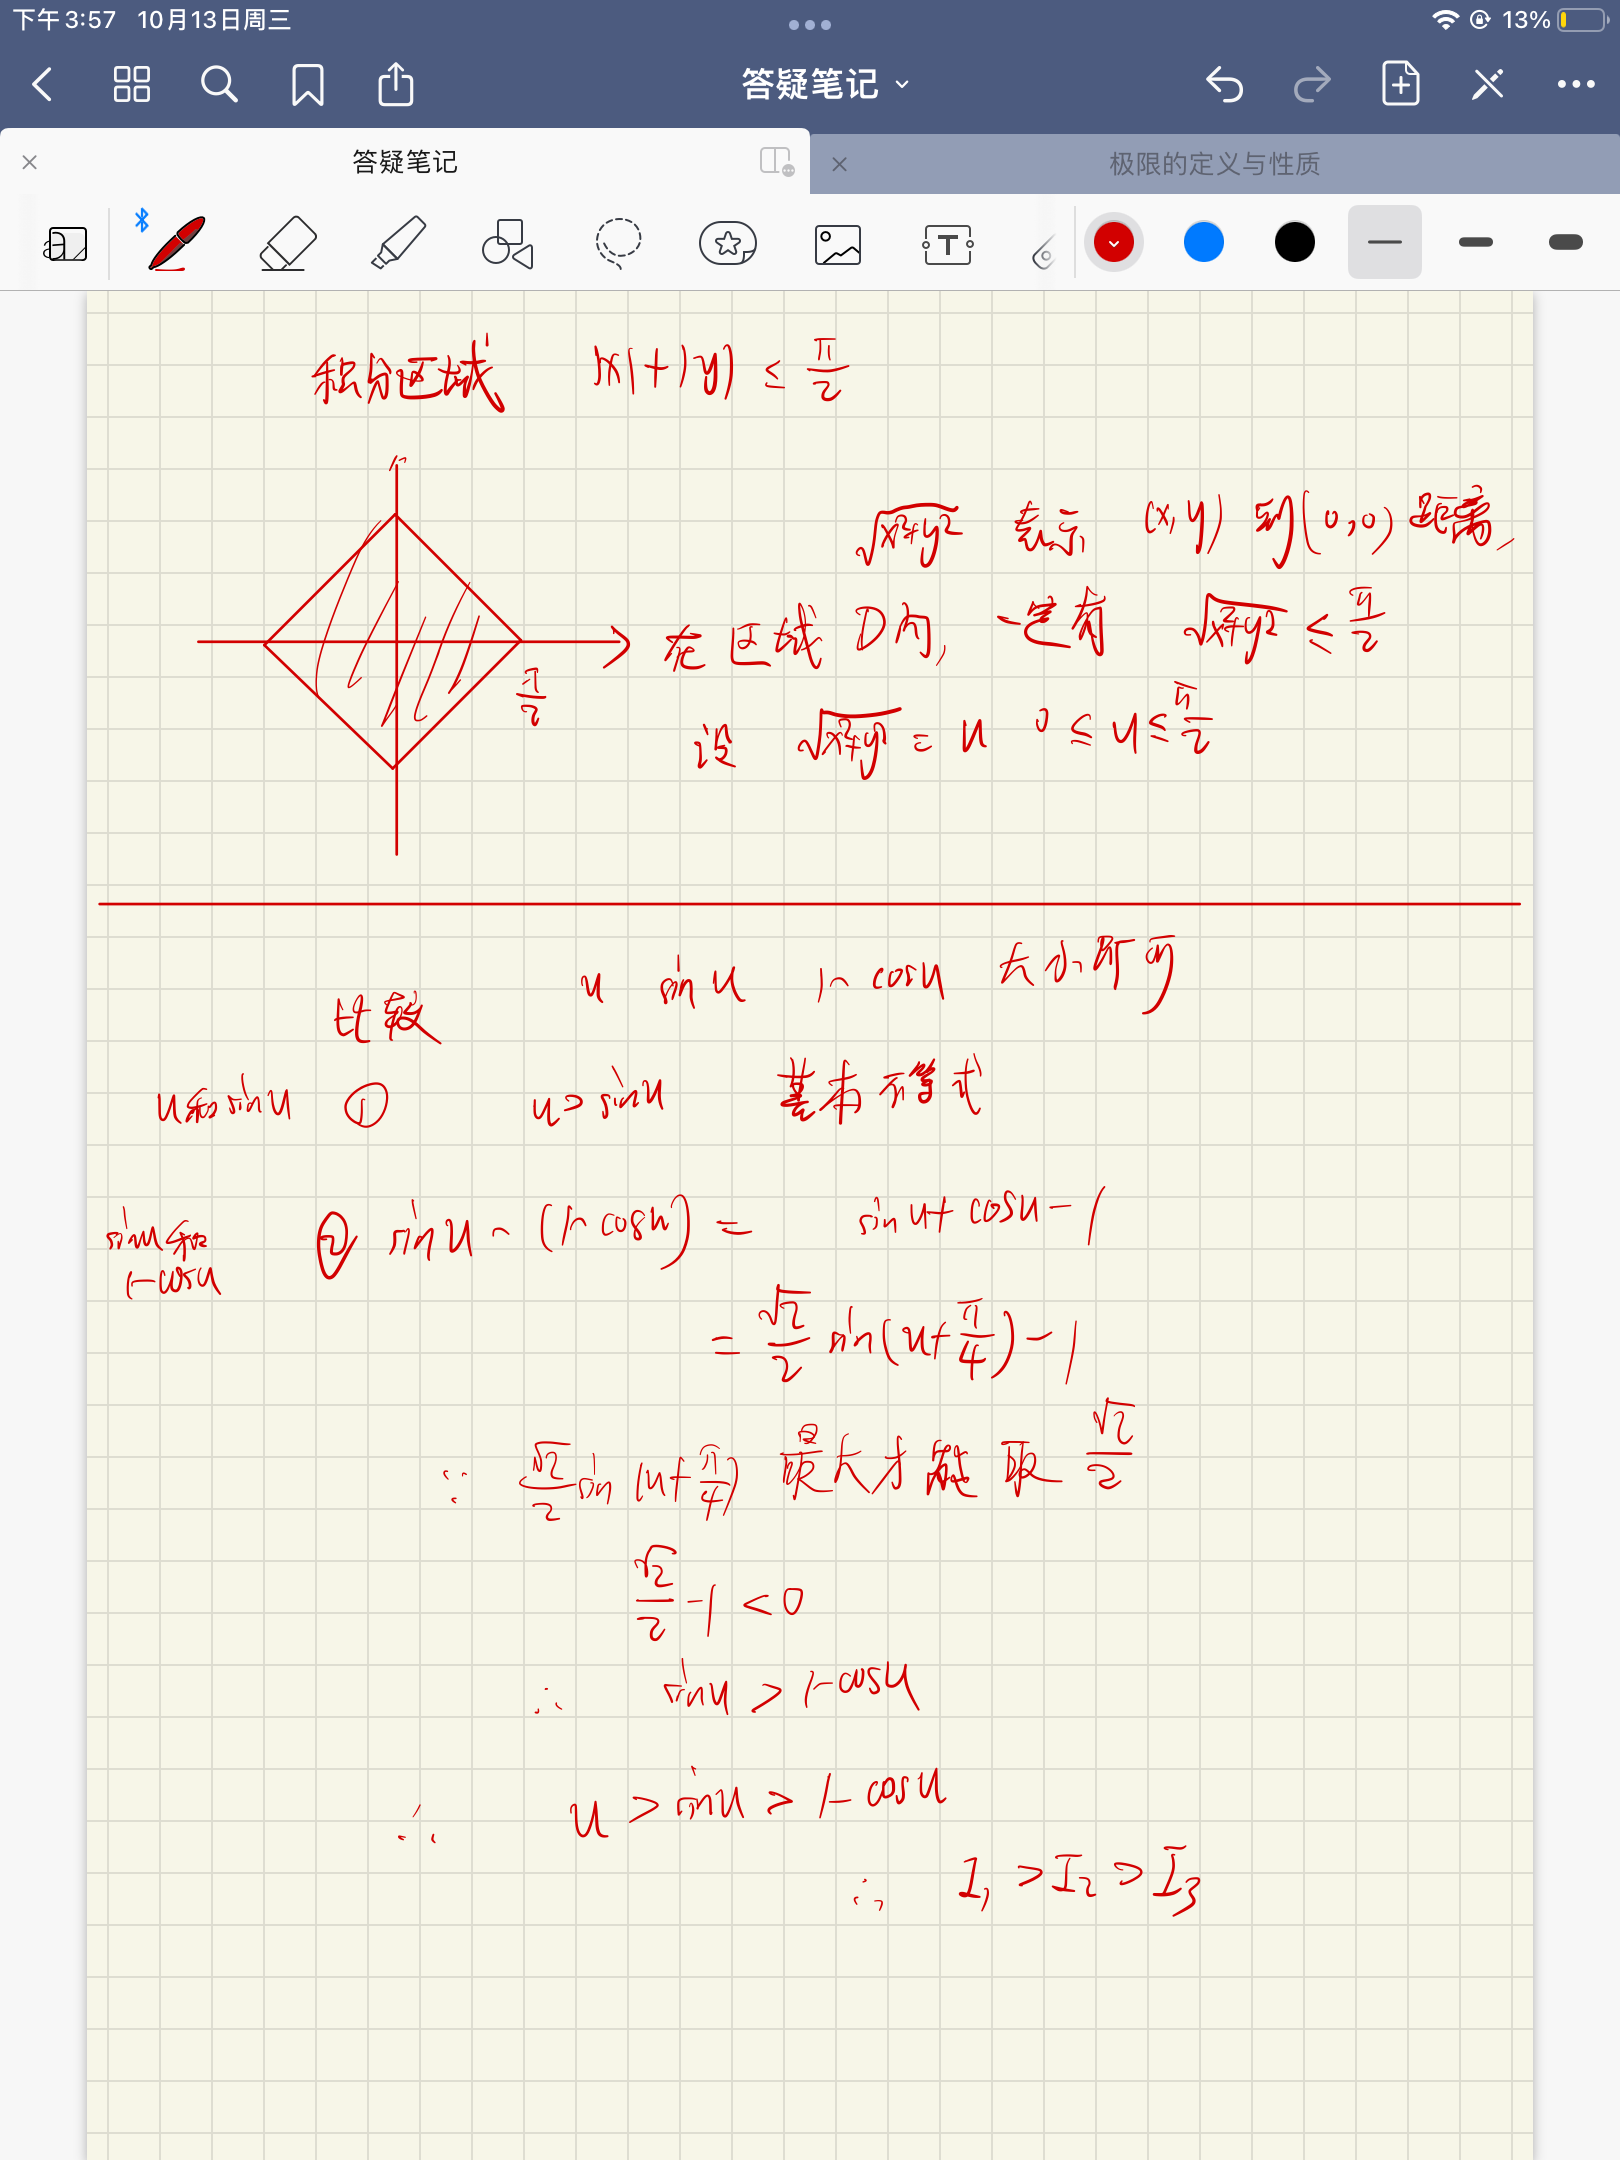 下午3:57 10月13日周三 13%
答疑笔记
答疑笔记 极限的定义与性质
积分区域 |x|+|y| ≤ π/2
√(x²+y²) 表示 (x,y) 到(0,0) 距离,
在区域 D内, 一定有 √(x²+y²) ≤ π/2
π/2
设 √(x²+y²) = u 0 ≤ u ≤ π/2
比较 u sinu 1-cosu 大小即可
u和sinu ① u > sinu 基本不等式
sinu和 1-cosu ② sinu - (1-cosu) = sinu + cosu - 1
= √2/2 sin(u+π/4) - 1
∵ √2/2 sin(u+π/4) 最大才能取 √2/2
√2/2 - 1 < 0
∴ sinu > 1-cosu
∴ u > sinu > 1-cosu
∴ I₁ > I₂ > I₃